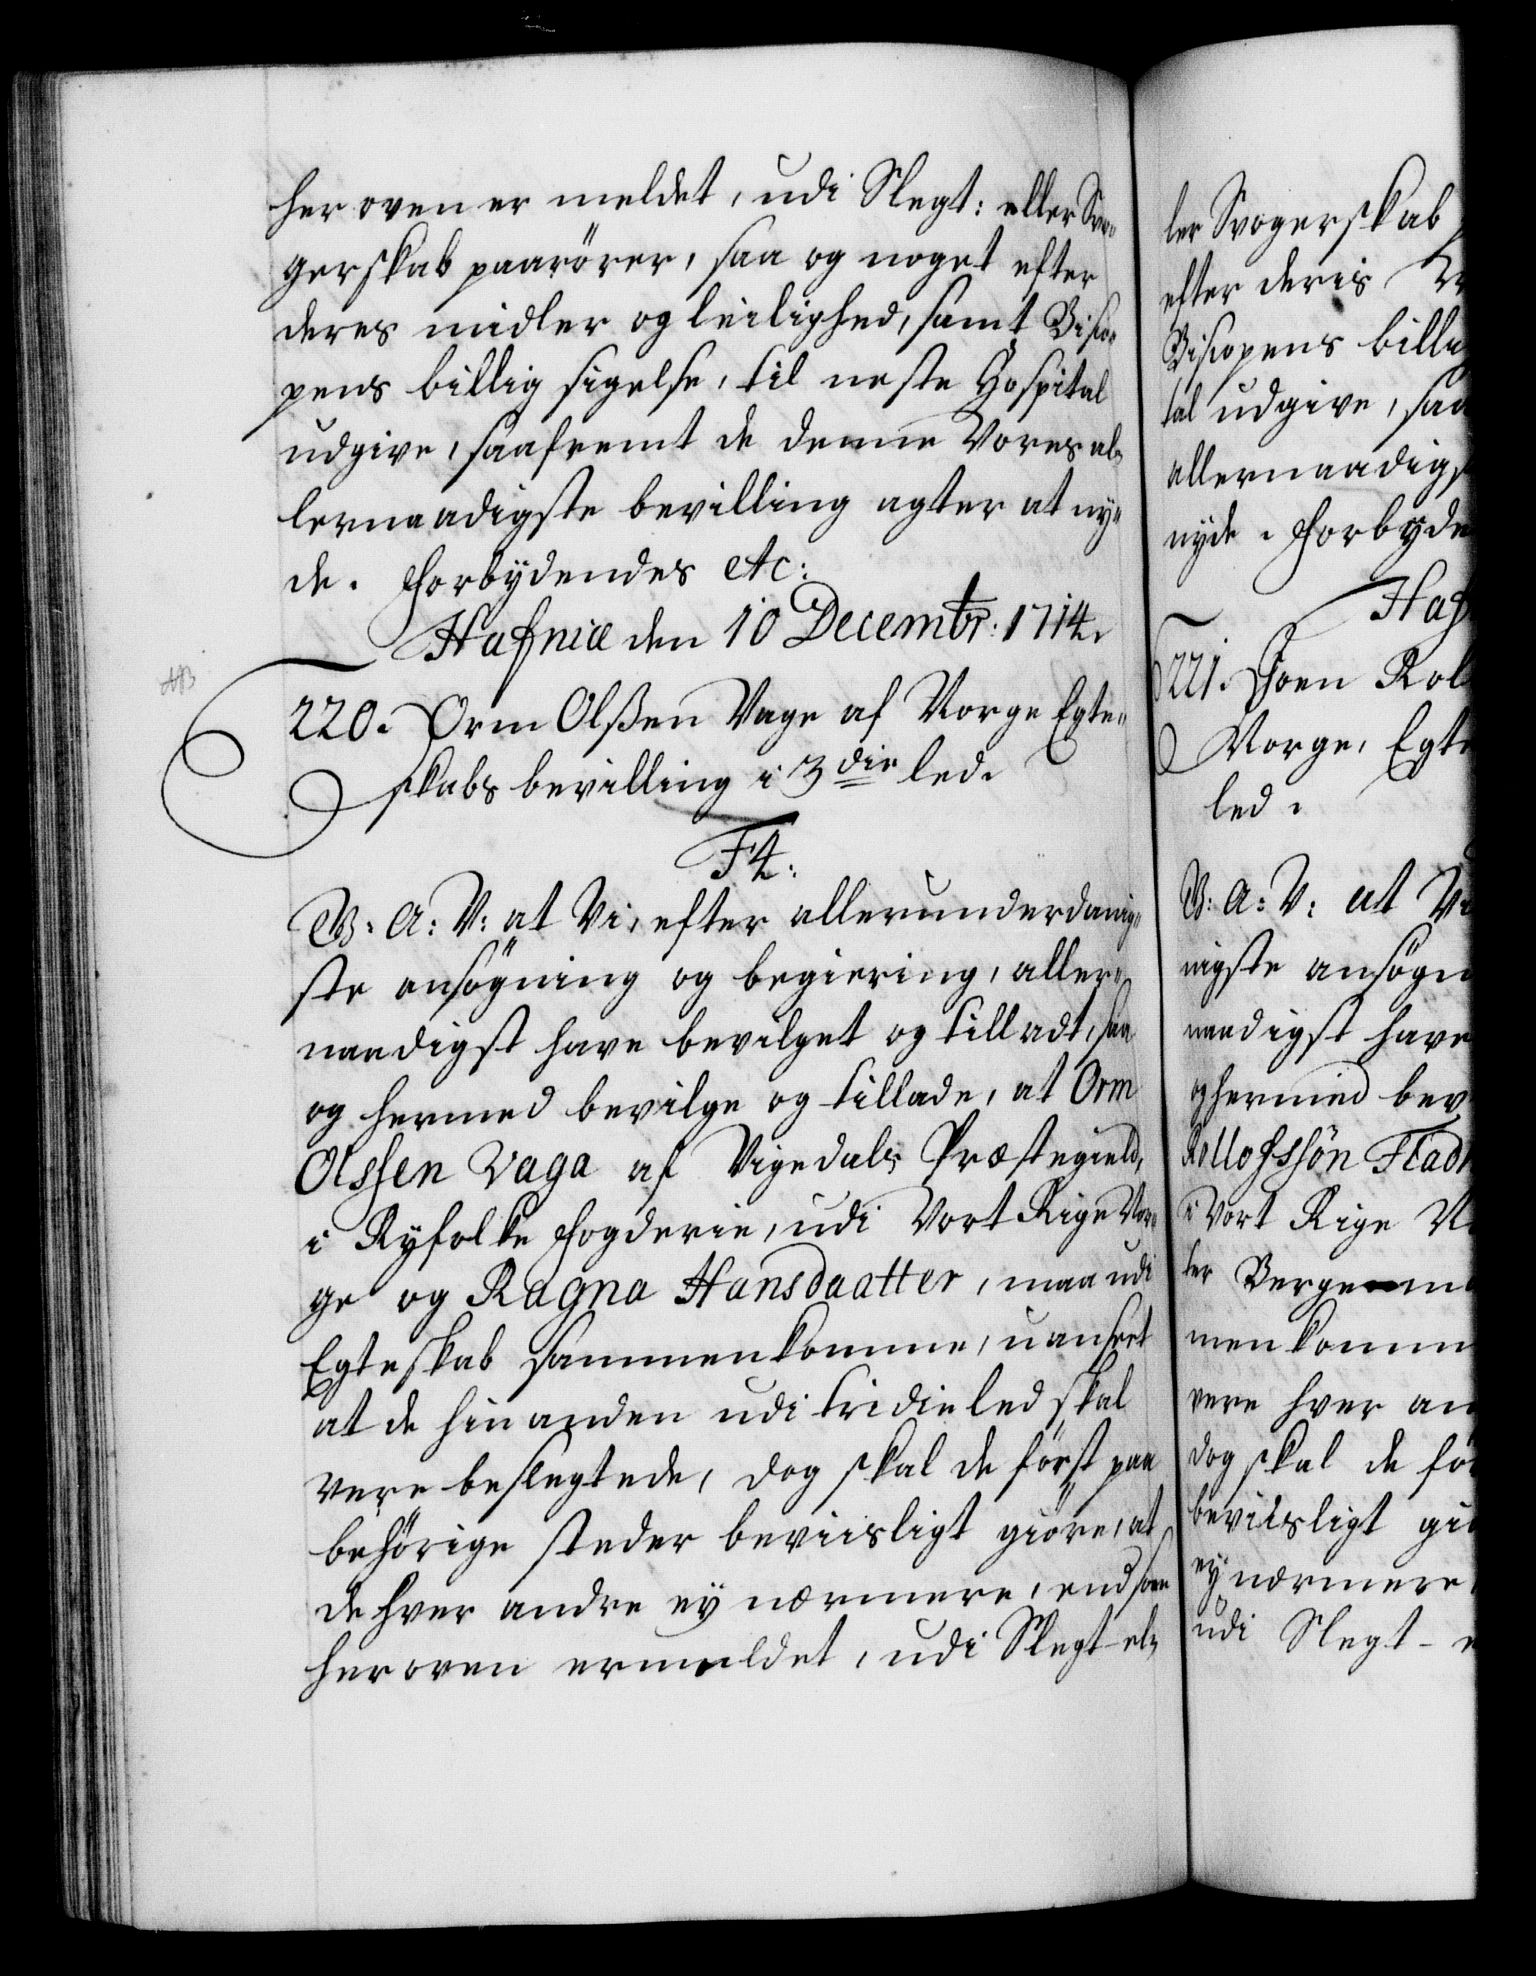 her oven er meldet, udi Slegt: eller Svo=
gerskab paarörer, saa og noget efter
deres midler og leilighed, samt Bisco=
pens billig sigelse, til neste Hospital
udgive, saafremt de denne Vores al=
lernaadigste bevilling agter at ny=
de. Forbydendes etc:
Hafniæ den 10 Decembr: 1714.
220. Orm Olsßen Vage af Norge Egte=
skabs bevilling i 3die led.
F4:
W: A: V: at Vi, efter allerunderdanig=
ste ansögning og begiering, aller=
naadigst have bevilget og tilladt, saa
og hermed bevilge og tillade, at Orm
Olssen Vaga af Vigedals Præstegield,
i Ryfolke Fogderie, udi Vort Rige Nor=
ge og Ragna Hansdaatter, maa udi
Egteskab sammenkomme, uanseet
at de hinanden udi tridie led skal
vere beslegtede, dog skal de först paa
behörige steder beviisligt giöre, at
de hver andre ey nærmere, end som
her oven ermeldet, udi Slegt- el=
ler Svogerskab
efter deris
Biscopens billig
tal udgive, saa
allernaadigst
nyde. Forbyde
Haf
221. Joen Rol
Norge, Egte
led.
W: A: V: at Vi
nigste ansögn
naadigst have
og hermed bev
Rollofssön Flad
i Vort Rige N
ter Bergen
men komm
vere hver an
dog skal de för
beviisligt gi
ey nærmere
udi Slegt- e